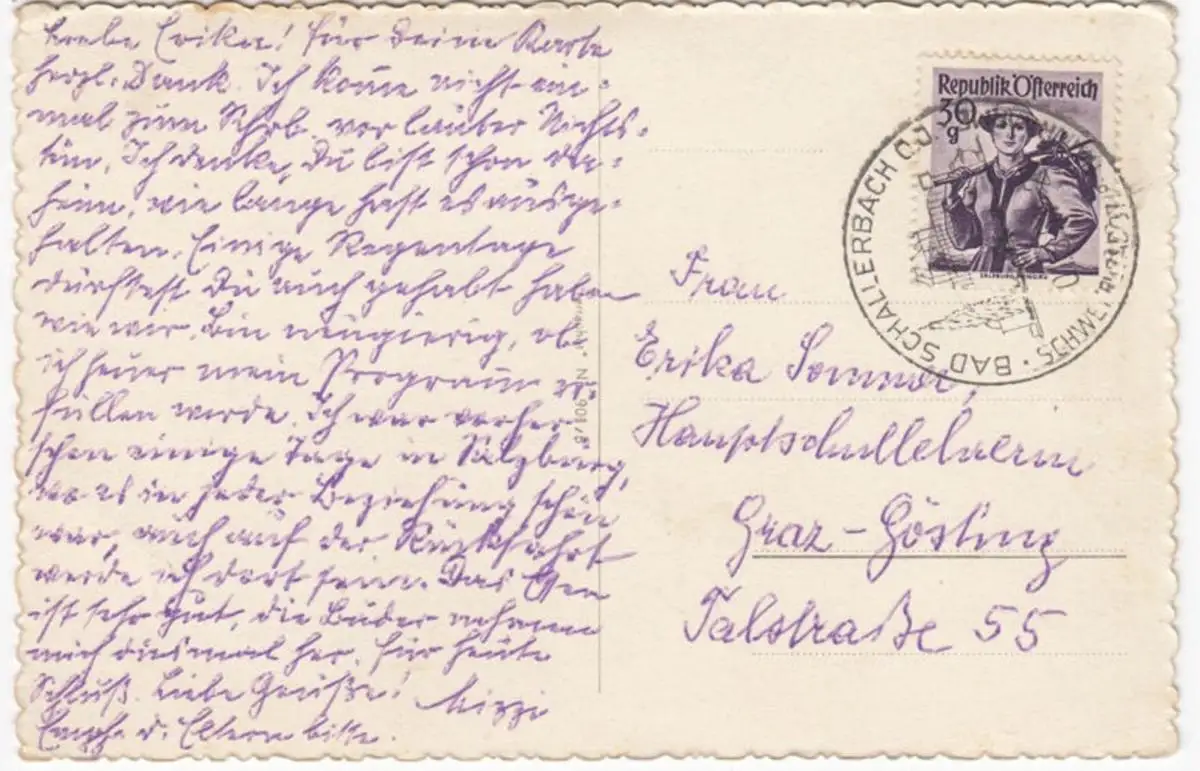 Liebe Erika! Für Deine Karte
herzl. Dank. Ich komme nicht ein-
mal zum Schrb. vor lauter Nichts-
tun. Ich denke, Du bist schon da-
heim, wie lange hast es ausge-
halten. Einige Regentage
dürftest Du auch gehabt haben
wie wir. Bin neugierig, ob
ich heuer mein Programm er-
füllen werde. Ich war vorher
schon einige Tage in Salzburg,
wo es in jeder Beziehung schön
war, auch auf der Rückfahrt
werde ich dort sein. Das Essen
ist sehr gut, die Bäder nehmen
mich diesmal her. Für heute
Schluß. Liebe Grüße! Mizzi
Empf. d. Eltern bitte.
Republik Österreich
30
g
BAD SCHALLERBACH
Frau
Erika Sommer,
Hauptschullehrerin
Graz-Gösting
Talstraße 55